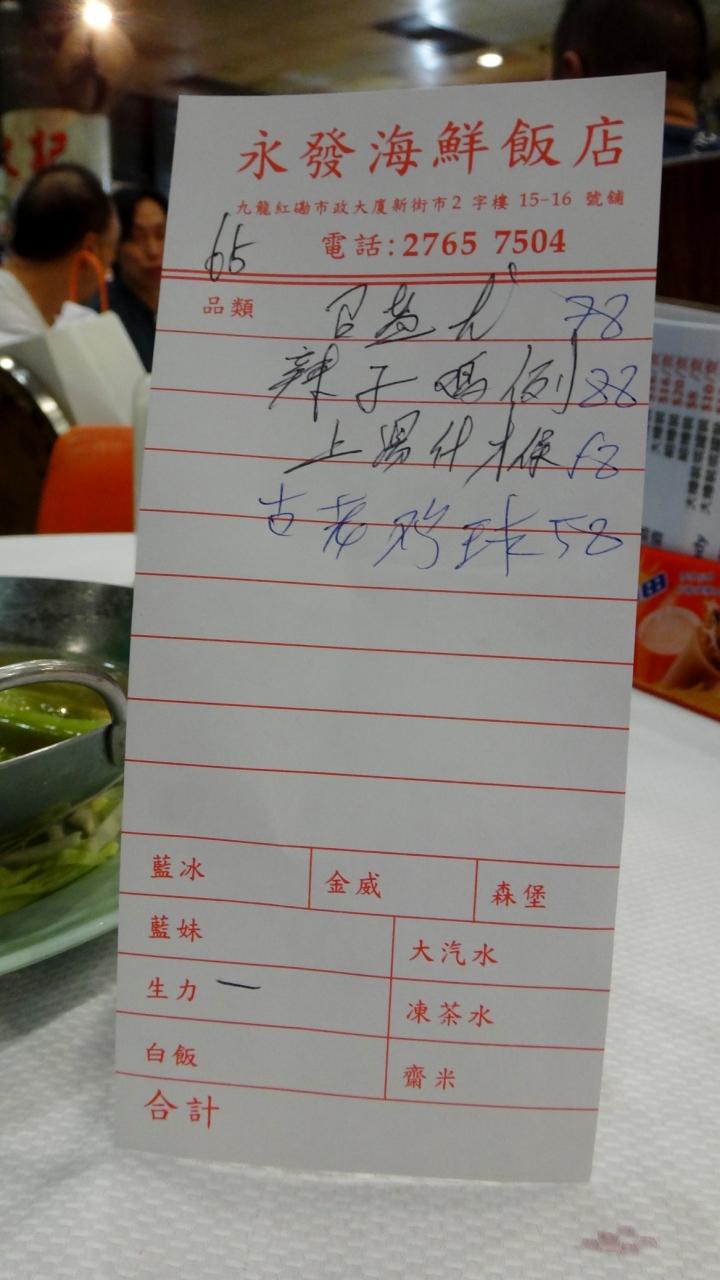 永發海鮮飯店
九龍紅磡市政大廈新街市2字樓 15-16 號舖
電話:2765 7504
65
品類 78
辣子鳴例 88
上湯什才保 58
古老珍球 58
藍冰 金威 森堡
藍妹 大汽水
生力 一 凍茶水
白飯 齋米
合計